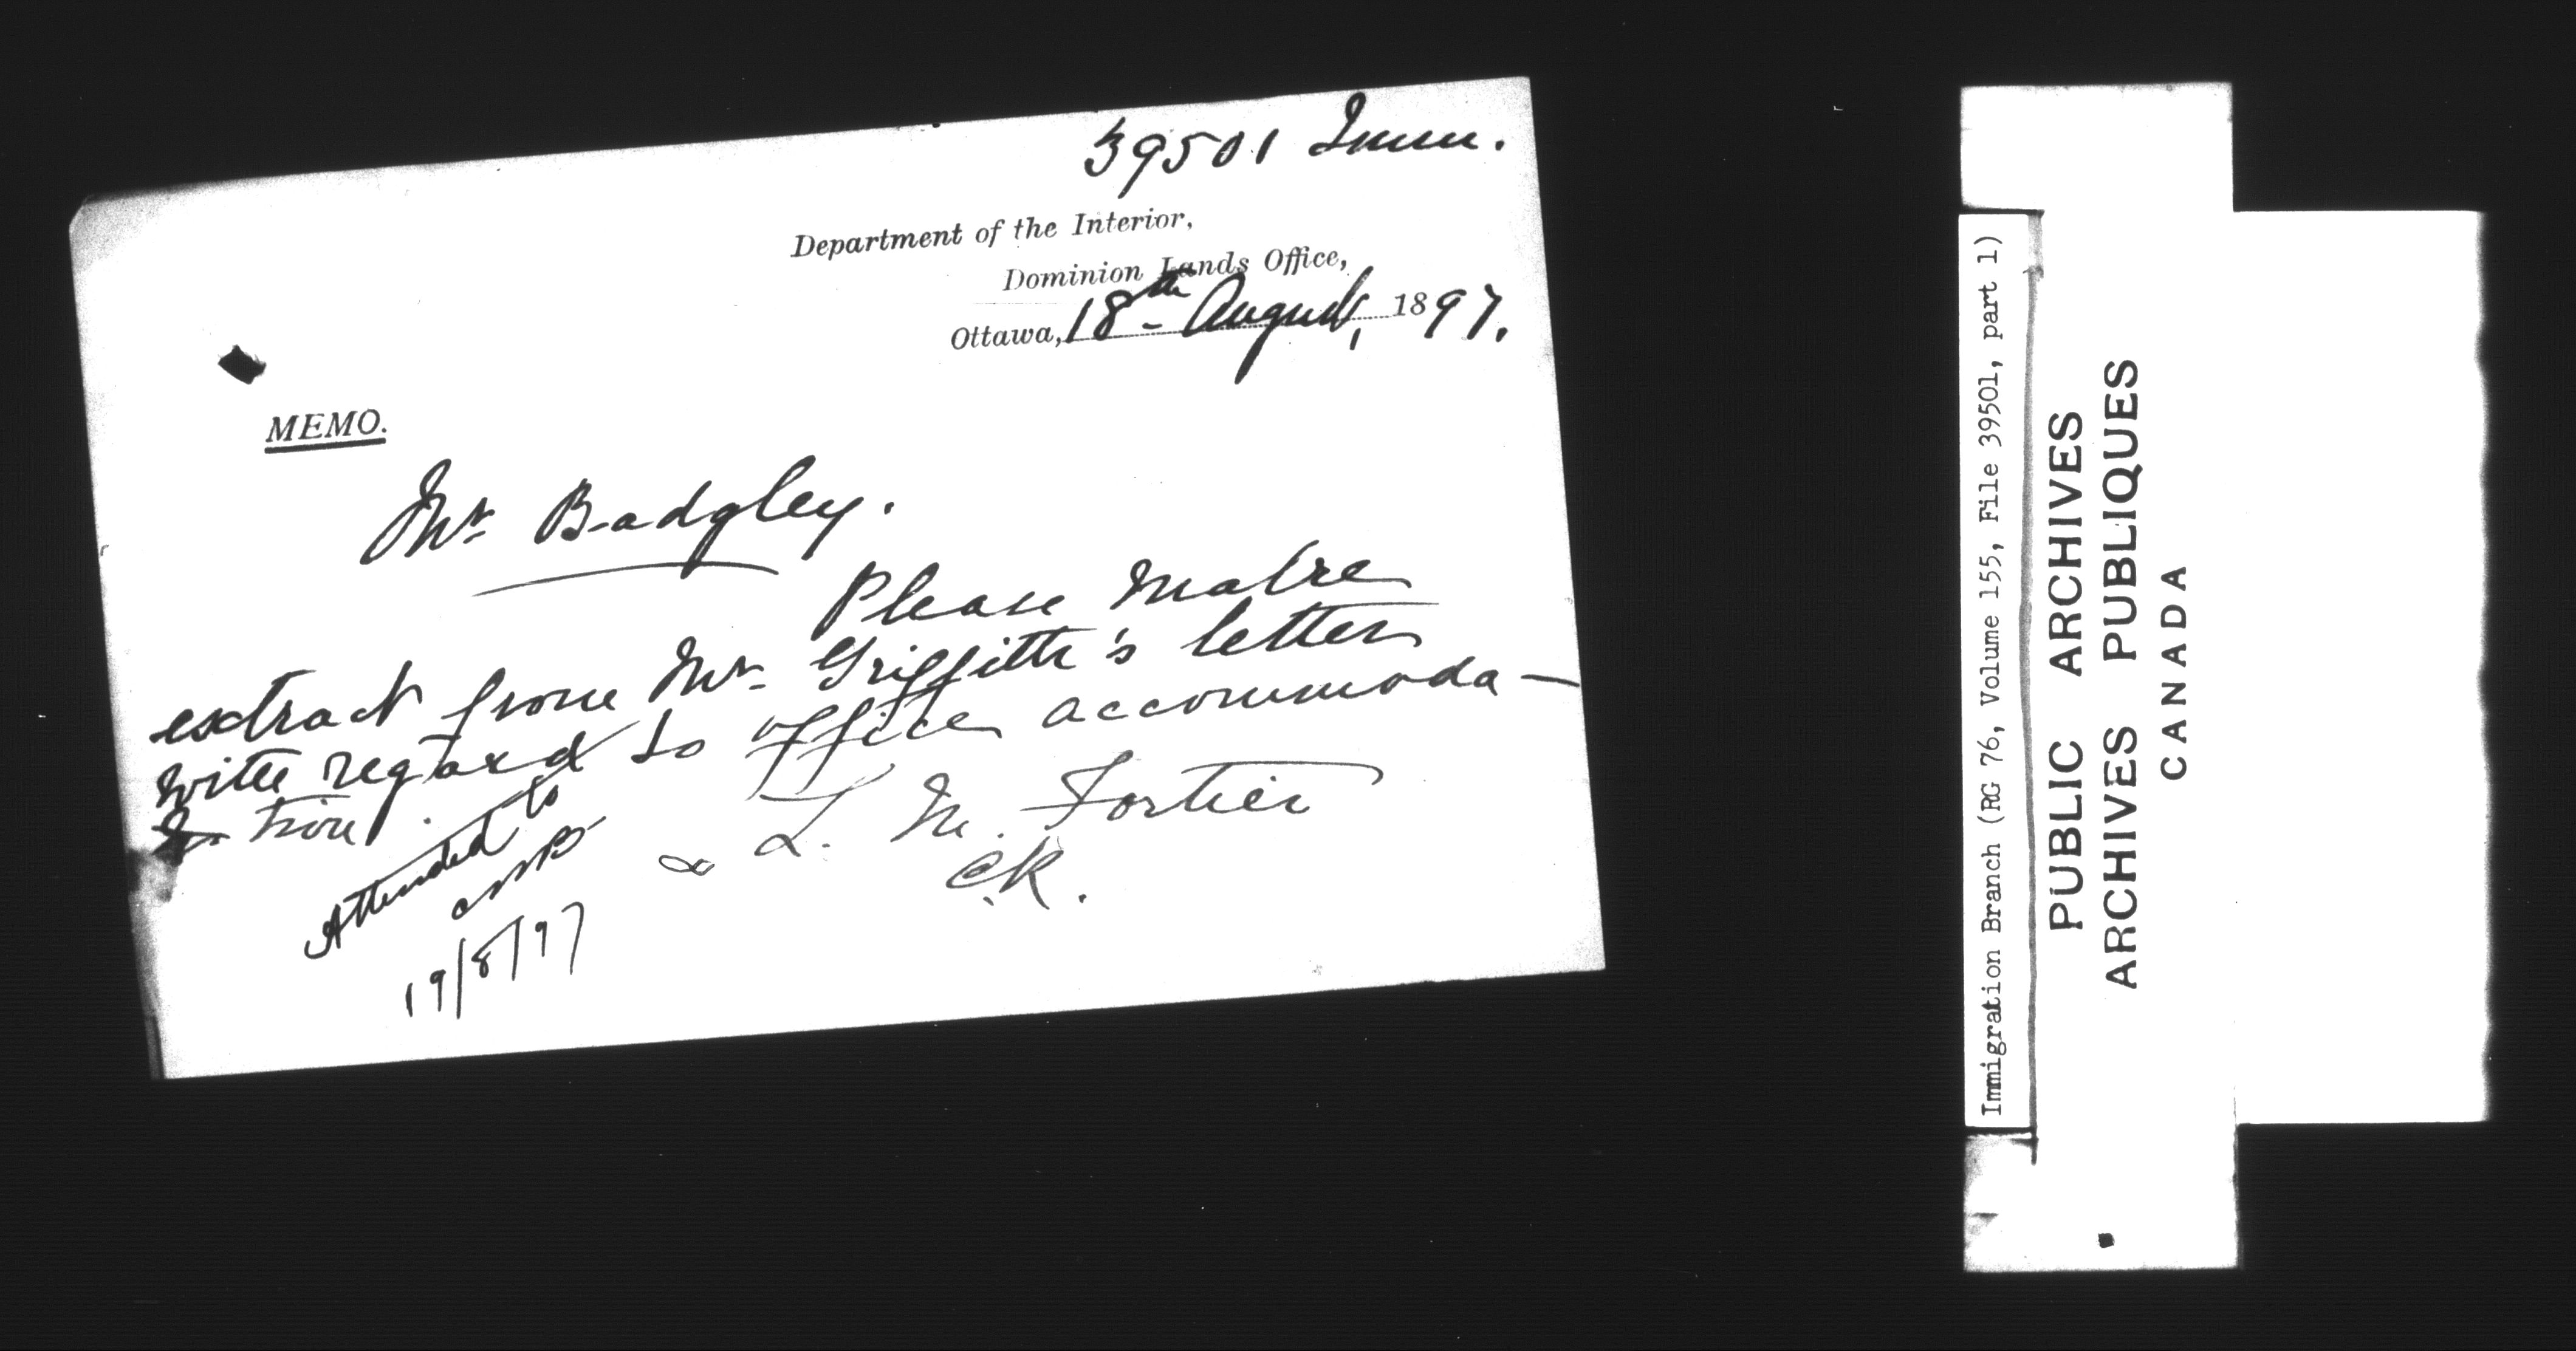 39501 Imm.
Department of the Interior,
Dominion Lands Office,
Ottawa, 18th August, 1897.
MEMO.
Mr. Badgley.
Please make
extract from Mr. Griffith's letter
with regard to office accommoda-
tion.
L. M. Fortier
CR.
Attended to
19/8/97
Immigration Branch (RG 76, Volume 155, File 39501, part 1)
PUBLIC ARCHIVES
ARCHIVES PUBLIQUES
CANADA